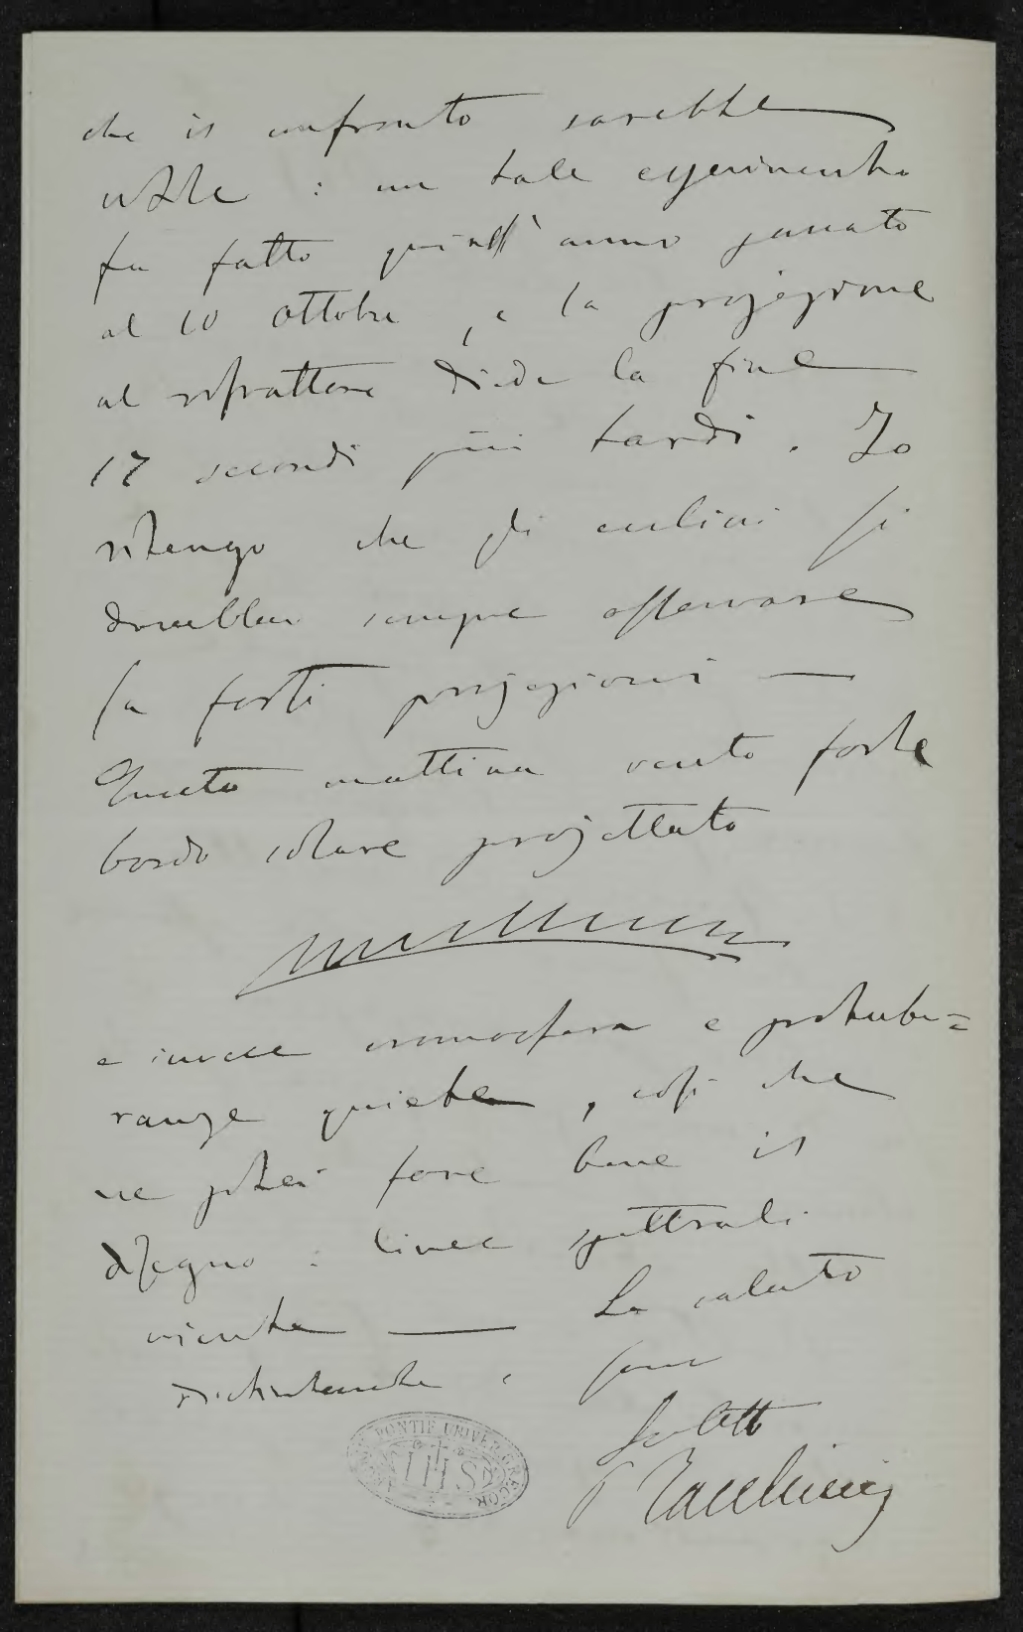 che il confronto sarebbe
utile : un tale esperimento
fu fatto quì nell' anno passato
al 10 ottobre , e la projezione
al rifrattore diede la fine
17 secondi più tardi . Io
ritengo che gli eclissi si
dovrebber sempre osservare
in forti projezioni —
Questa mattina vento forte
bordo solare projettato
e invece cromosfera e protube=
ranze quiete , così che
ne potei fare bene il
disegno : linee spettrali
niente — La saluto
distintamente e sono
P Tacchini
PONTIF UNIVER GREGOR
IHS